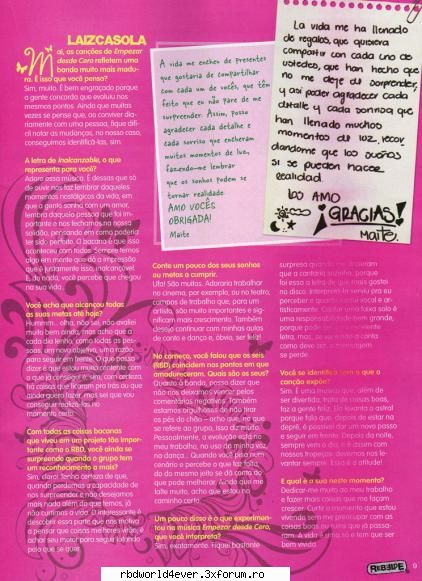 LAIZCASOLA
Mai, as canções de Empezar
desde Cero refletem uma
banda muito mais madu-
ra. É isso que você pensa?
Sim, muito. É bem engraçado porque
a gente concorda que evoluiu nos
mesmos pontos. Ainda que muitas
vezes se pense que, ao conviver di-
ariamente com uma pessoa, fique difí-
cil notar as mudanças, no nosso caso,
conseguimos identificá-las, sim.
A letra de Inalcanzable, o que
representa para você?
Adoro essa música. É dessas que só
de ouvir nos faz lembrar daqueles
momentos nostálgicos da vida, em
que a gente sonha com um amor,
lembra daquela pessoa que foi im-
portante e nos fechamos na nossa
solidão, pensando em como poderia
ter sido perfeito. O bacana é que isso
aconteceu com todos. Sempre temos
algo em mente que dá a impressão
que é justamente isso, inalcançável.
E, do nada, você percebe que chegou
na sua vida...
Você acha que alcançou todas
as suas metas até hoje?
Hummm... olha, não sei, não avaliei
muito bem ainda, mas acho que a
cada dia tenho, como todas as pes-
soas, um novo objetivo, uma razão
para seguir em frente. O que posso
dizer é que estou muito contente com
o que já consegui e, com certeza,
há coisas que ficaram pra trás ou que
ainda quero fazer, mas sei que vou
conseguir realizá-las no
momento certo.
Com todas as coisas bacanas
que viveu em um projeto tão impor-
tante como o RBD, você ainda se
surpreende quando o grupo tem
um reconhecimento a mais?
Sim, claro! Tenho certeza de que,
quando perdemos a capacidade de
nos surpreender e não desejamos
mais nada além do que temos, já
não curtimos a vida. O interessante é
descobrir essa parte que nos motiva
a pensar que coisas melhores virão, é
achar seu motor para seguir lutando
pelo que se quer.
A vida me encheu de presentes
que gostaria de compartilhar
com cada um de vocês, que têm
feito que eu não pare de me
surpreender. Assim, posso
agradecer cada detalhe e
cada sorriso que encheram
muitos momentos de luz,
fazendo-me lembrar
que os sonhos podem se
tornar realidade
AMO VOCÊS
OBRIGADA!
Maite
La vida me ha llenado
de regalos, que quisiera
compartir con cada uno de
ustedes, que han hecho que
no me deje de sorprender,
y asi poder agradecer cada
detalle y cada sonrisa que
han llenado muchos
momentos de luz, recor
dandome que los sueños
si se pueden hacer
realidad.
los AMO
¡GRACIAS!
Maite.
Conte um pouco dos seus sonhos
ou metas a cumprir.
Ufa! São muitos. Adoraria trabalhar
no cinema, por exemplo, ou no teatro,
campos de trabalho que, para um
artista, são muito importantes e sig-
nificam mais crescimento. Também
desejo continuar com minhas aulas
de canto e dança e, óbvio, ser feliz!
No começo, você falou que os seis
(RBD) coincidem nos pontos em que
amadureceram. Quais são os seus?
Quanto à banda, posso dizer que
não nos deixamos vencer pelos
comentários negativos. Também
estamos orgulhosos de não tirar
os pés do chão – acho que, no que
se refere ao grupo, isso diz muito.
Pessoalmente, a evolução está no
meu trabalho, no uso da minha voz,
na dança... Quando você pisa num
cenário e percebe o que faz falta,
ao mesmo jeito se dá conta do
que pode melhorar. Ainda que me
falte muito, acho que estou no
caminho certo.
Um pouco disso é o que experimen-
tou na música Empezar desde Cero,
que você interpreta?
Sim, exatamente. Fiquei bastante
surpresa quando me disseram
que a cantaria sozinha, porque
foi essa a letra de que mais gostei
no disco. Interpretá-la serviu pra eu
perceber e quanto mudei vocal e ar-
tisticamente. Cantar uma faixa solo é
uma responsabilidade bem grande,
porque pode ser
letra, mas, se você não a canta
como deve ser, a mensagem
se perde.
Você se identifica com o que a
canção expõe?
Sim. É uma música que, além de
ser divertida, trata de coisas boas,
faz a gente feliz. Ela levanta o astral
porque fala que, depois de estar na
deprê, é possível dar um novo passo
e seguir em frente. Depois da noite,
sempre vem o dia, e é assim com
nossos tropeços, devemos nos le-
vantar sempre. Essa é a atitude!
E qual é a sua neste momento?
Dedicar-me muito ao meu trabalho
e fazer mais coisas que me façam
crescer. Curtir o momento que estou
vivendo sem me preocupar com as
coisas boas ou ruins que já passa-
ram. A vida é uma só e tem que ser
bem vivida
REBELDE
9
rbdworld4ever.3xforum.ro